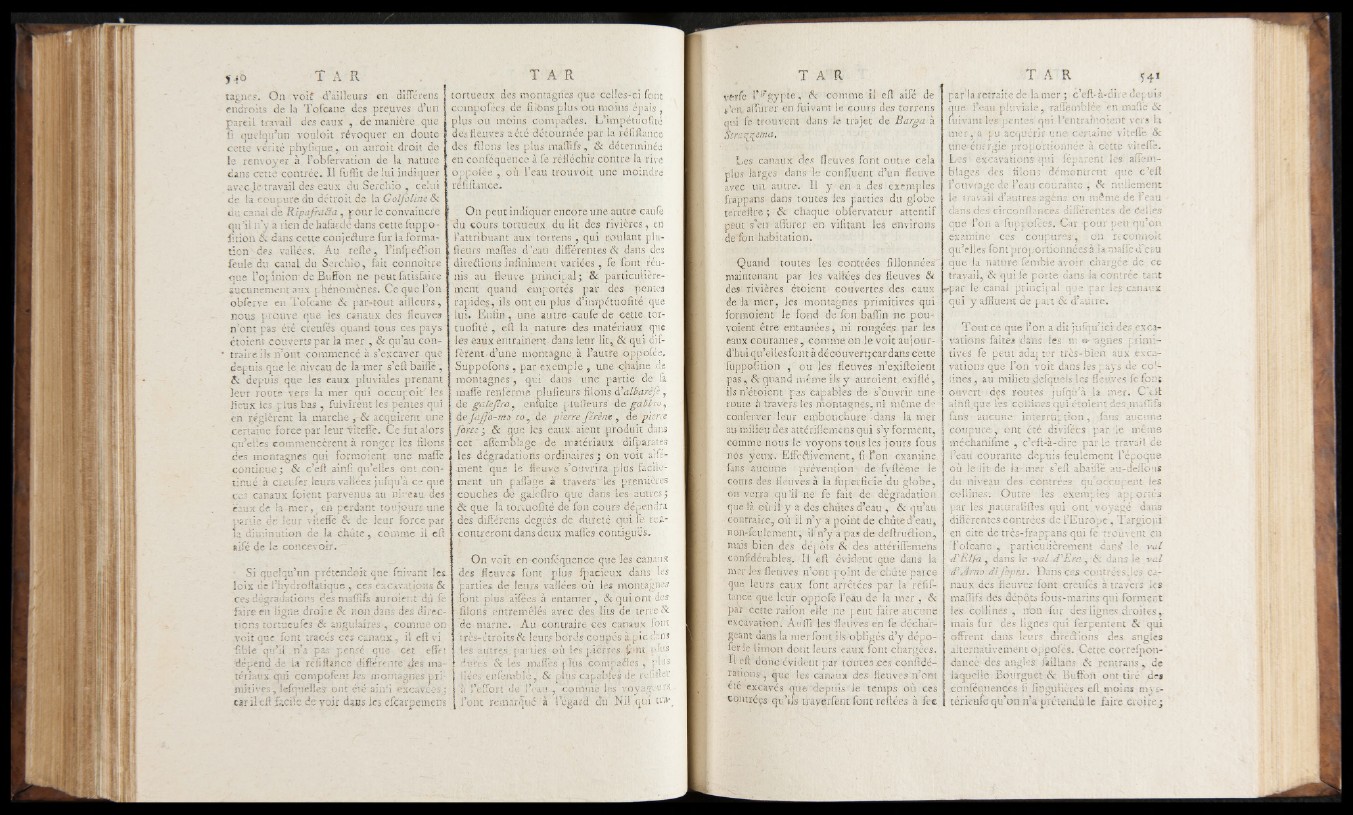 540 TAR
tagnes. On voit d'ailleurs en différens
endroits de la Toscane des preuves d'un
pareil travail des eaux , de manière que
si quelqu'un vouloit révoquer en doute
cette vérité physique, on auroit droit de
le renvoyer à l'observation de la nature
dans cette contrée. Il suffit de lui indiquer
avec le travail des eaux du Serchio , celui
de la coupure du détroit de la Golfoline &
du canal de Ripafratta , pour le convaincre
qu'il n'y a rien de hasardé dans cette suppo-
sition & dans cette conjecture sur la forma-
tion des vallées. Au reste, l'inspection
seule du canal du Serchio, fait connoître
que l'opinion de Buffon ne peut satisfaire
aucunement aux phénomènes. Ce que l'on
observe en Toscane & par-tout ailleurs,
nous prouve que les canaux des fleuves
n'ont pas été creusés quand tous ces pays
étoient couverts par la mer , & qu'au con-
traire ils n'ont commencé à s'excaver que
depuis que le niveau de la mer s'est baissé ,
& depuis que les eaux pluviales prenant
leur route vers la mer qui occupoit les
lieux les plus bas , suivirent les pentes qui
en réglèrent la marche , & acquirent une
certaine force par leur vitesse. Ce fut alors
qu'elles commencèrent à ronger les filons
des montagnes qui formoient une masse
continue ; & c'est ainsi qu'elles ont con-
tinué à creuser leurs vallées jusqu'à ce que
ces canaux soient parvenus au niveau des
eaux de la mer, en perdant toujours une
partie de leur vitesse & de leur force par
la diminution de la chûte , comme il est
aisé de le concevoir.
Si quelqu'un prétendoit que suivant les
loix de l'hydrostatique , ces excavations &
ces dégradations des massifs auroient dû se
faire en ligne droite & non dans des direc-
tions tortueuses & angulaires , comme on
voit que sont tracés ces canaux , il est vi-
sible qu'il n'a pas pensé que cet effet
dépend de la résistance différente des ma-
tériaux qui composent les montagnes pri-
mitives , lesquelles ont été ainsi excavées ;
car il est facile de voir dans les escarpemens
TAR
tortueux des montagnes que celles-ci sont
composées de filons plus ou moins épais ,
plus ou moins compactes. L'impétuosité
des fleuves a été détournée par la résistance
des filons les plus massifs , & déterminée
en conséquence à se réfléchir contre la rive
opposée , où l'eau trouvoit une moindre
résistance.
On peut indiquer encore une autre cause
du cours tortueux du lit des rivières , en
l'attribuant aux torrens , qui roulant plu-
sieurs masses d'eau différentes & dans des
directions infiniment variées , se sont réu-
nis au fleuve principal ; & particulière-
ment quand emportés par des pentes
rapides, ils ont eu plus d'impétuosité que
lui. Enfin, une autre cause de cette tor-
tuosité , est la nature des matériaux que
les eaux entraînent dans leur lit, & qui dif-
fèrent d'une montagne à l'autre opposée.
Supposons , par exemple , une chaîne de
montagnes , qui dans une partie de sa
masse renferme plusieurs filons d'albarèse ,
de galestro, ensuite plusieurs de gabbro,
de sasso-mo to, de pierre sérène , de pierre
forte ; & que les eaux aient produit dans
cet assemblage de matériaux disparates
les dégradations ordinaires ; on voit aisé-
ment que le fleuve s'ouvrira plus facile-
ment un passage à travers les premières
couches de galestro que dans les autres ;
& que la tortuosité de son cours dépendra
des différens degrés de dureté qui se ren-
contreront dans deux masses contiguës.
On voit en conséquence que les canaux
des fleuves sont plus spacieux dans les
parties de leurs vallées où les montagnes
sont plus aisées à entamer, & qui ont des
filons entremêlés avec des lits de terre &
de marne. Au contraire ces canaux sont
très-étroits & leurs bords coupés à pic dans
les autres parties où les pierres sont plus
dures & les masses plus compactes , plus
liées ensemble, & plus capables de résister
à l'effort de l'eau , comme les voyageurs
l'ont remarqué à l'égard du Nil qui tra-
TAR
verse l'Egypte, & comme il est aisé de
s'en assurer en suivant le cours des torrens
qui se trouvent dans le trajet de Barga à
Strazzema.
Les canaux des fleuves sont outre cela
plus larges dans le confluent d'un fleuve
avec un autre. Il y en a des exemples
frappans dans toutes les parties du globe
terrestre ; & chaque observateur attentif
peut s'en assurer en visitant les environs
de son habitation.
Quand toutes les contrées sillonnées
maintenant par les vallées des fleuves &
des rivières étoient couvertes des eaux
de la mer, les montagnes primitives qui
formoient le fond de son bassin ne pou-
voient être entamées, ni rongées par les
eaux courantes, comme on le voit aujour-
d'hui qu'elles sont à découvert; car dans cette
supposition , ou les fleuves n'existoient
pas, & quand même ils y auroient existé,
ils n'étoient pas capables de s'ouvrir une
route à travers les montagnes, ni même de
conserver leur embouchure dans la mer
au milieu des attérissemens qui s'y forment,
comme nous le voyons tous les jours sous
nos yeux. Effectivement, si l'on examine
sans aucune prévention de système le
cours des fleuves à la superficie du globe,
on verra qu'il ne se fait de dégradation
que là où il y a des chûtes d'eau , & qu'au
contraire, où il n'y a point de chûte d'eau,
non-seulement, il n'y a pas de destruction,
mais bien des dépôts & des attérissemens
considérables. Il est évident que dans la
mer les fleuves n'ont point de chûte parce
que leurs eaux sont arrêtées par la résis-
tance que leur oppose l'eau de la mer , &
par cette raison elle ne peut faire aucune
excavation. Aussi les fleuves en se déchar-
geant dans la mer sont ils obligés d'y dépo-
ser le limon dont leurs eaux sont chargées.
Il est donc évident par toutes ces considé-
rations, que les canaux des fleuves n'ont
été excavés que depuis le temps où ces
contrées qu'ils traversent sont restées à sec
TAR 541
par la retraite de la mer ; c'est-à-dire depuis
que l'eau pluviale, rassemblée en masse &
suivant les pentes qui l'entraînoient vers la
mer, a pu acquérir une certaine vitesse &
une énergie proportionnée à cette vitesse.
Les excavations qui séparent les assem-
blages des filons démontrent que c'est
l'ouvrage de l'eau courante , & nullement
le travail d'autres agens ou même de l'eau
dans des circonstances différentes de celles
que l'on a supposées. Car pour peu qu'on
examine ces coupures, on reconnoît
qu'elles sont proportionnées à la masse d'eau
que la nature semble avoir chargée de ce
travail, & qui se porte dans la contrée tant
par le canal principal que par les canaux
qui y affluent de part & d'autre.
Tout ce que l'on a dit jusqu'ici des exca-
vations faites dans les montagnes primi-
tives se peut adapter très-bien aux exca-
vations que l'on voit dans les pays de col-
lines, au milieu desquels les fleuves se sont
ouvert des routes jusqu'à la mer. C'est
ainsi que les collines qui étoient des massifs
sans aucune interruption, sans aucune
coupure, ont été divisées par le même
méchanisme , c'est-à-dire par le travail de
l'eau courante depuis seulement l'époque
où le lit de la mer s'est abaissé au-dessous
du niveau des contrées qu'occupent les
collines. Outre les exemples apportés
par les naturalistes qui ont voyagé dans
différentes contrées de l'Europe , Targioni
en cite de très-frappans qui se trouvent en
Toscane , particulièrement dans le val
d'Elsa, dans le val d'Era, & dans le val
d'Arno di sopra. Dans ces contrées les ca-
naux des fleuves sont creusés à travers les
massifs des dépôts sous-marins qui forment
les collines , non sur des lignes droites,
mais sur des lignes qui serpentent & qui
offrent dans leurs directions des angles
alternativement opposés. Cette correspon-
dance des angles saillans & rentrans, de
laquelle Bourguet & Buffon ont tiré des
conséquences si singulières est moins mys-
térieuse qu'on n'a prétendu le faire croire ;